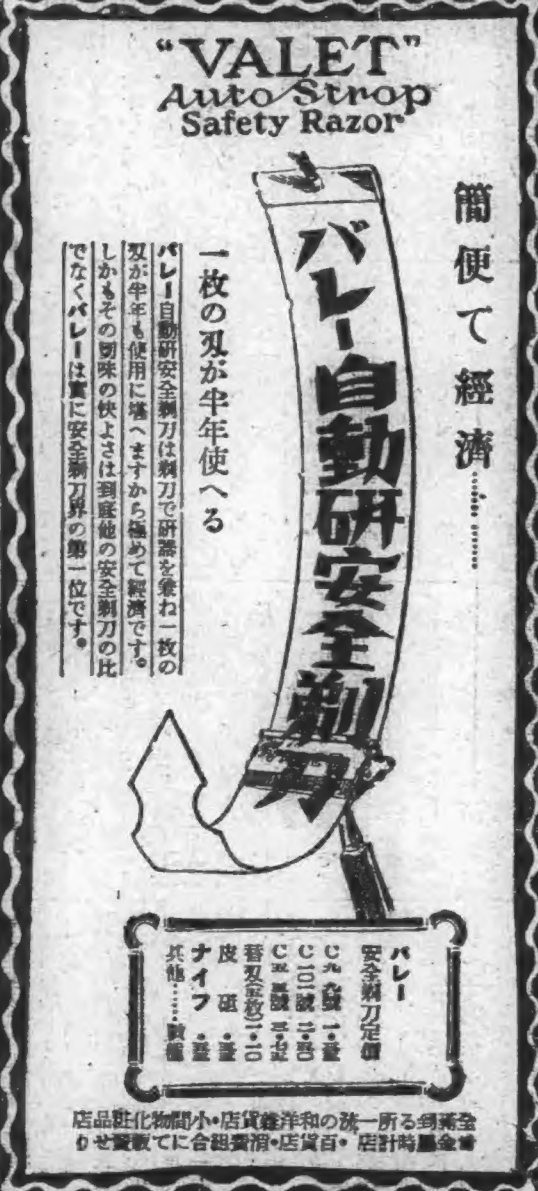 "VALET"
Auto Strop
Safety Razor
簡便で經濟…………
バレー自動研安全剃刀
一枚の刄が半年使へる
バレー自動研安全剃刀は剃刀で研器を兼ね一枚の
刄が半年も使用に堪へますから極めて經濟です。
しかもその切味の快よさは到底他の安全剃刀の比
でなくバレーは實に安全剃刀界の第一位です。
バレー
安全剃刀定價
C九九號
C一〇一號 二・五〇
C五 號
替刄(五枚)一・一〇
皮砥
ナイフ
其他……
全 到る所一流の和洋雜貨店・小間物化粧品店
金 時計店・百貨店・消費組合にて販賣せり